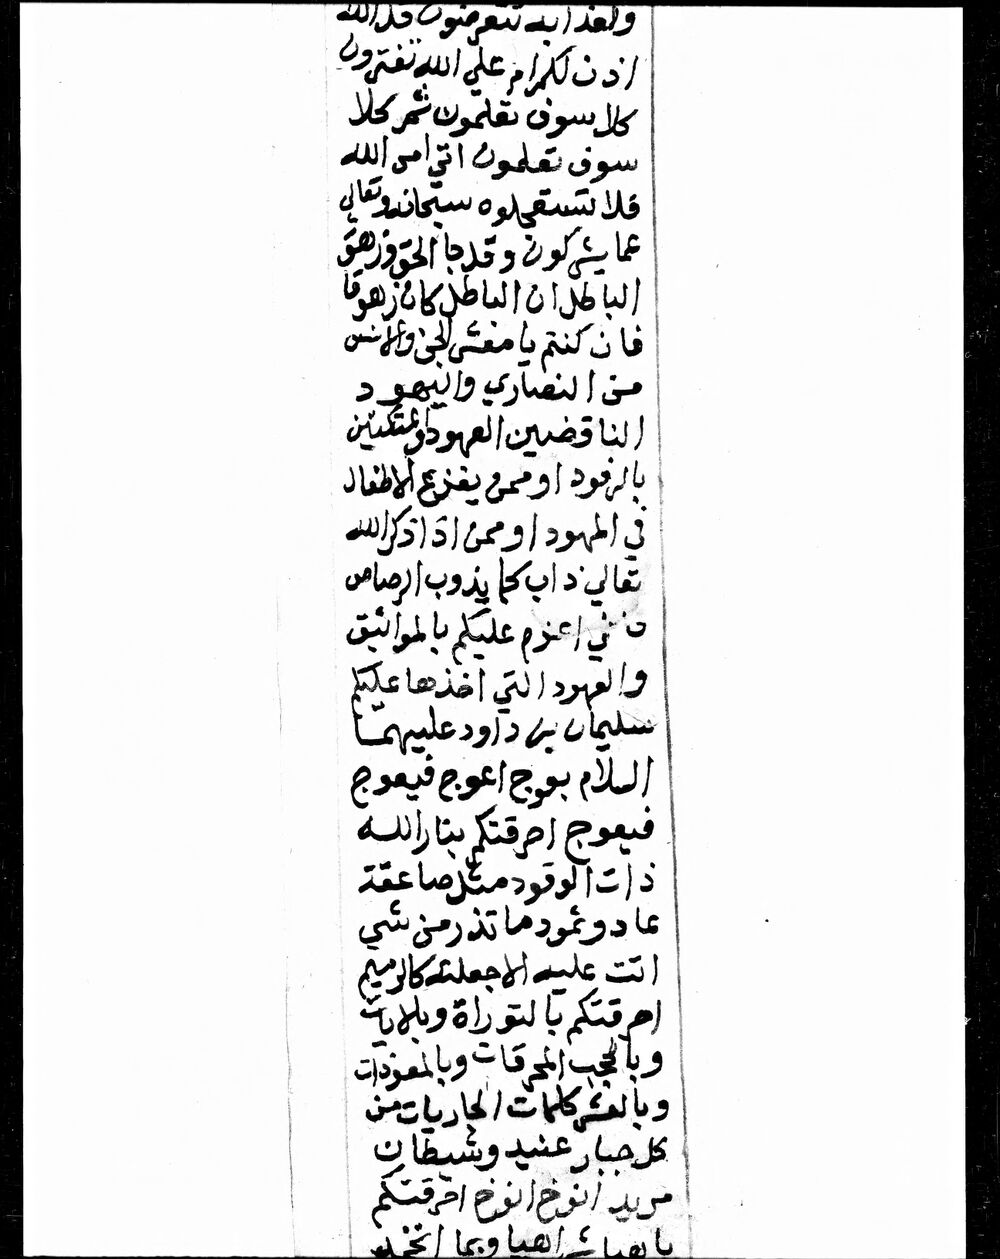 ولعذابه تتعرضون قل الله
اذن لكم ام علي الله تفترون
كلا سوف تعلمون ثم كلا
سوف تعلمون اتي امر الله
فلا تستعجلوه سبحانه وتعالي
عما يشركون وقد جا الحق وزهق
الباطل ان الباطل كان زهوقا
فان كنتم يا معشر الجن والانس
من النصاري واليهود
الناقضين العهود
بالرقود او ممن يفزع الاطفال
في المهود او ممن اذا ذكر الله
تعالي ذاب كما يذوب الرصاص
فاني اعزم عليكم بالمواثيق
والعهود التي اخذها عليكم
سليمان بن داود عليهما
السلام بعوج اعوج فيعوج
فيعوج احرقتكم بنار الله
ذات الوقود مثل صاعقة
عاد وثمود ما تذر من شي
اتت عليه الا جعلته كالرميم
احرقتكم بالتوراة وبالايات
وبالحجب المحرقات وبالمعوذات
وبالعشر كلمات الجاريات من
كل جبار عنيد وشيطان
مريد انوخ انوخ احرقتكم
اهيا وبما